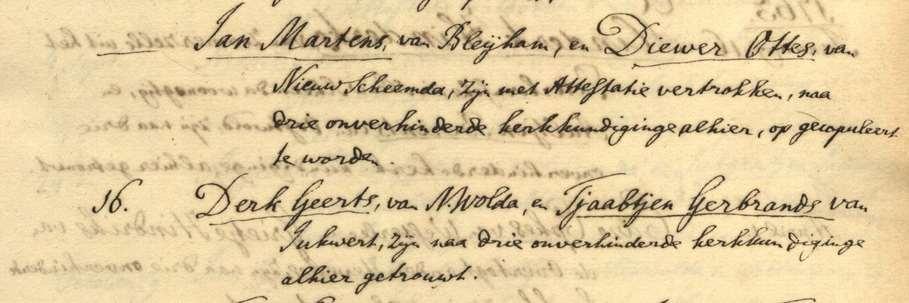 Jan Martens, van Bleijham, en Diewer Ottes, van
Nieuw Scheemda, zijn met Attestatie vertrokken, naa
drie onverhinderde kerkkundiginge alhier, op gecopuleert
te worden.
16. Derk Geerts, van N.Wolda, en Tjaabtjen Gerbrands van
Jukwert, zijn naa drie onverhinderde kerkkundiginge
alhier getrouwt.